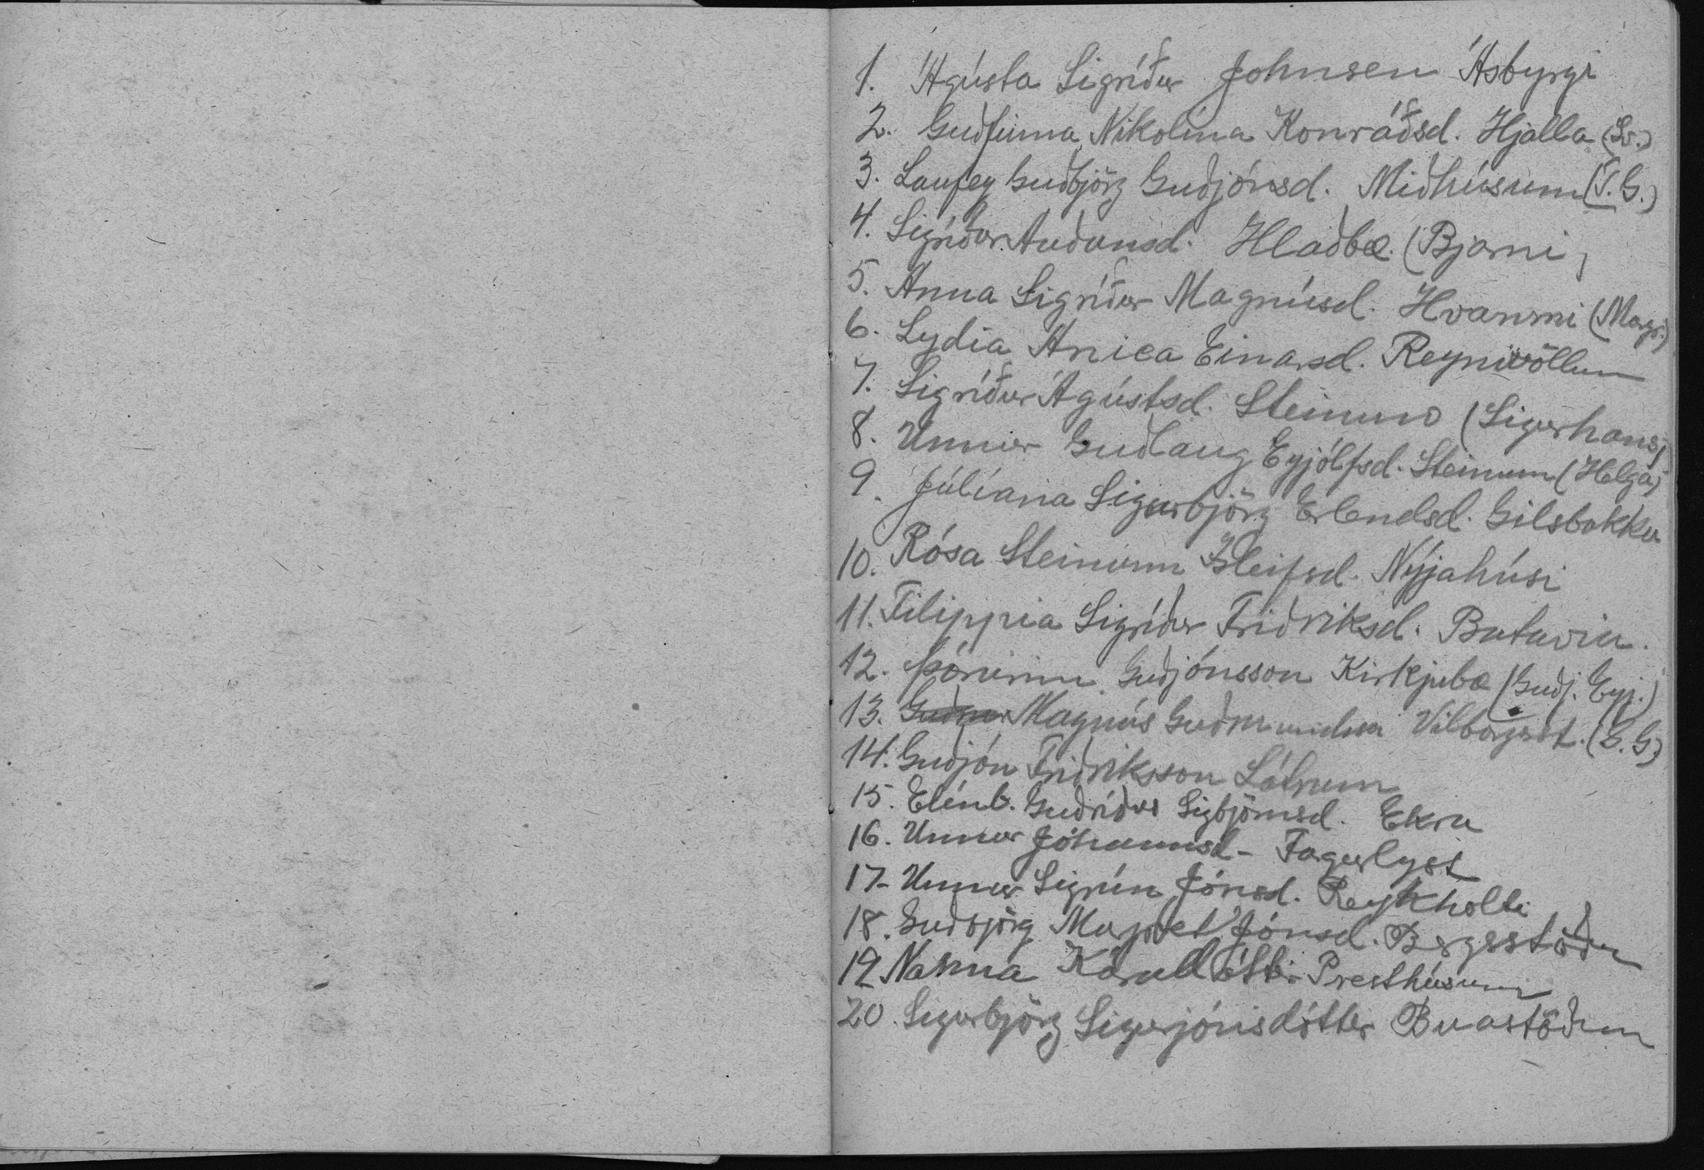 1. Ágústa Sigríður Johnsen Ásbyrgi
2. Guðfinna Nikolína Konráðsd. Hjalla (Sv.)
3. Laufey Guðbjörg Guðjónsd. Miðhúsum (J.G.)
4. Sigríður Auðunsd. Hlaðbæ. (Bjarni)
5. Anna Sigríður Magnúsd. Hvammi (Magn.)
6. Lydia Anica Einarsd. Reynivöllum
7. Sigríður Ágústsd. Steinum (Sigurhans)
8. Unnur Guðlaug Eyjólfsd. Steinum (Helga)
9. Júlíana Sigurbjörg Erlendsd. Gilsbakka
10. Rósa Steinunn Hleifsd. Nýjahúsi
11. Filippia Sigríður Friðriksd. Batavia.
12. Þórarinn Guðjónsson Kirkjubæ (Guðj. Eyj.)
13. Magnús Guðmundur (G.G)
14. Guðjón Friðriksson Látrum
15. Elínb. Guðríður Sigbjörnsd. Ekru
16. Unnur Jóhannsd - Fagurlyst
17- Unnur Sigrún Jónsd. Reykholti
18. Guðbjörg Magnet Jónsd. Bergsstöðum
19 Nanna Káradóttir Presthúsum
20. Sigurbjörg Sigurjónsdótter Buastöðum